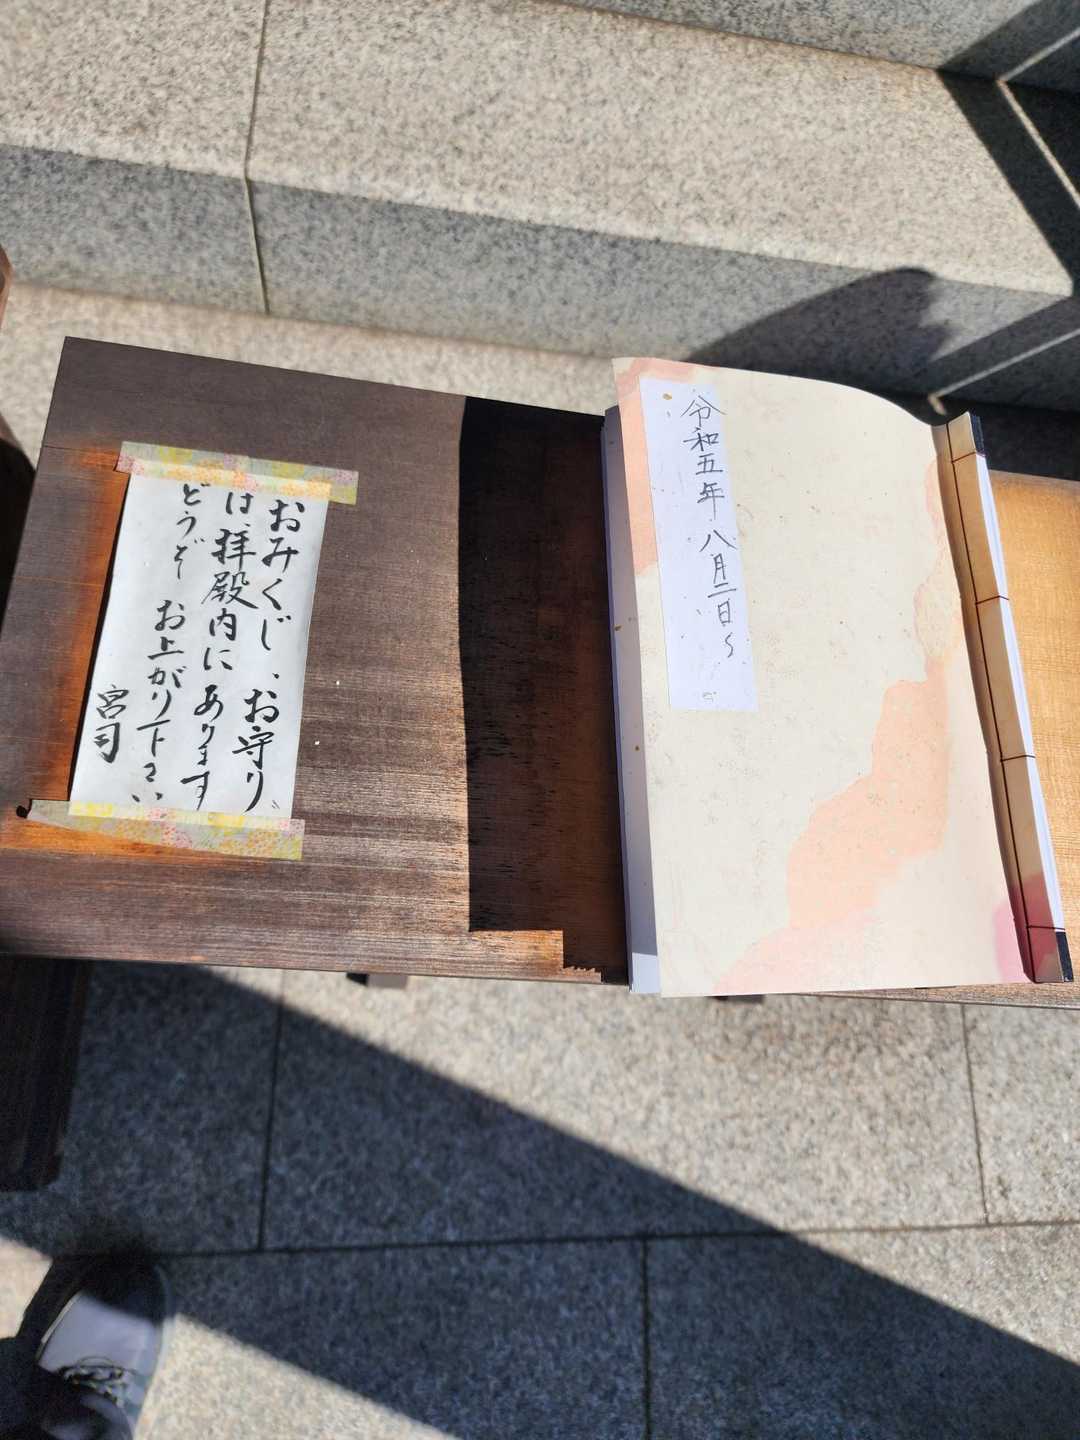 おみくじ、お守り
は、拝殿内にあります
どうぞ お上がり下さい
宮司
令和五年 八月二日〜